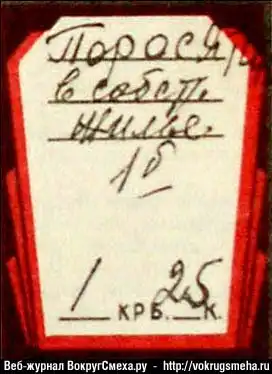 Порося
в собст.
жилье.
1б
1 крб. 25 к.
Веб-журнал ВокругСмеха.ру - http://vokrugsmeha.ru